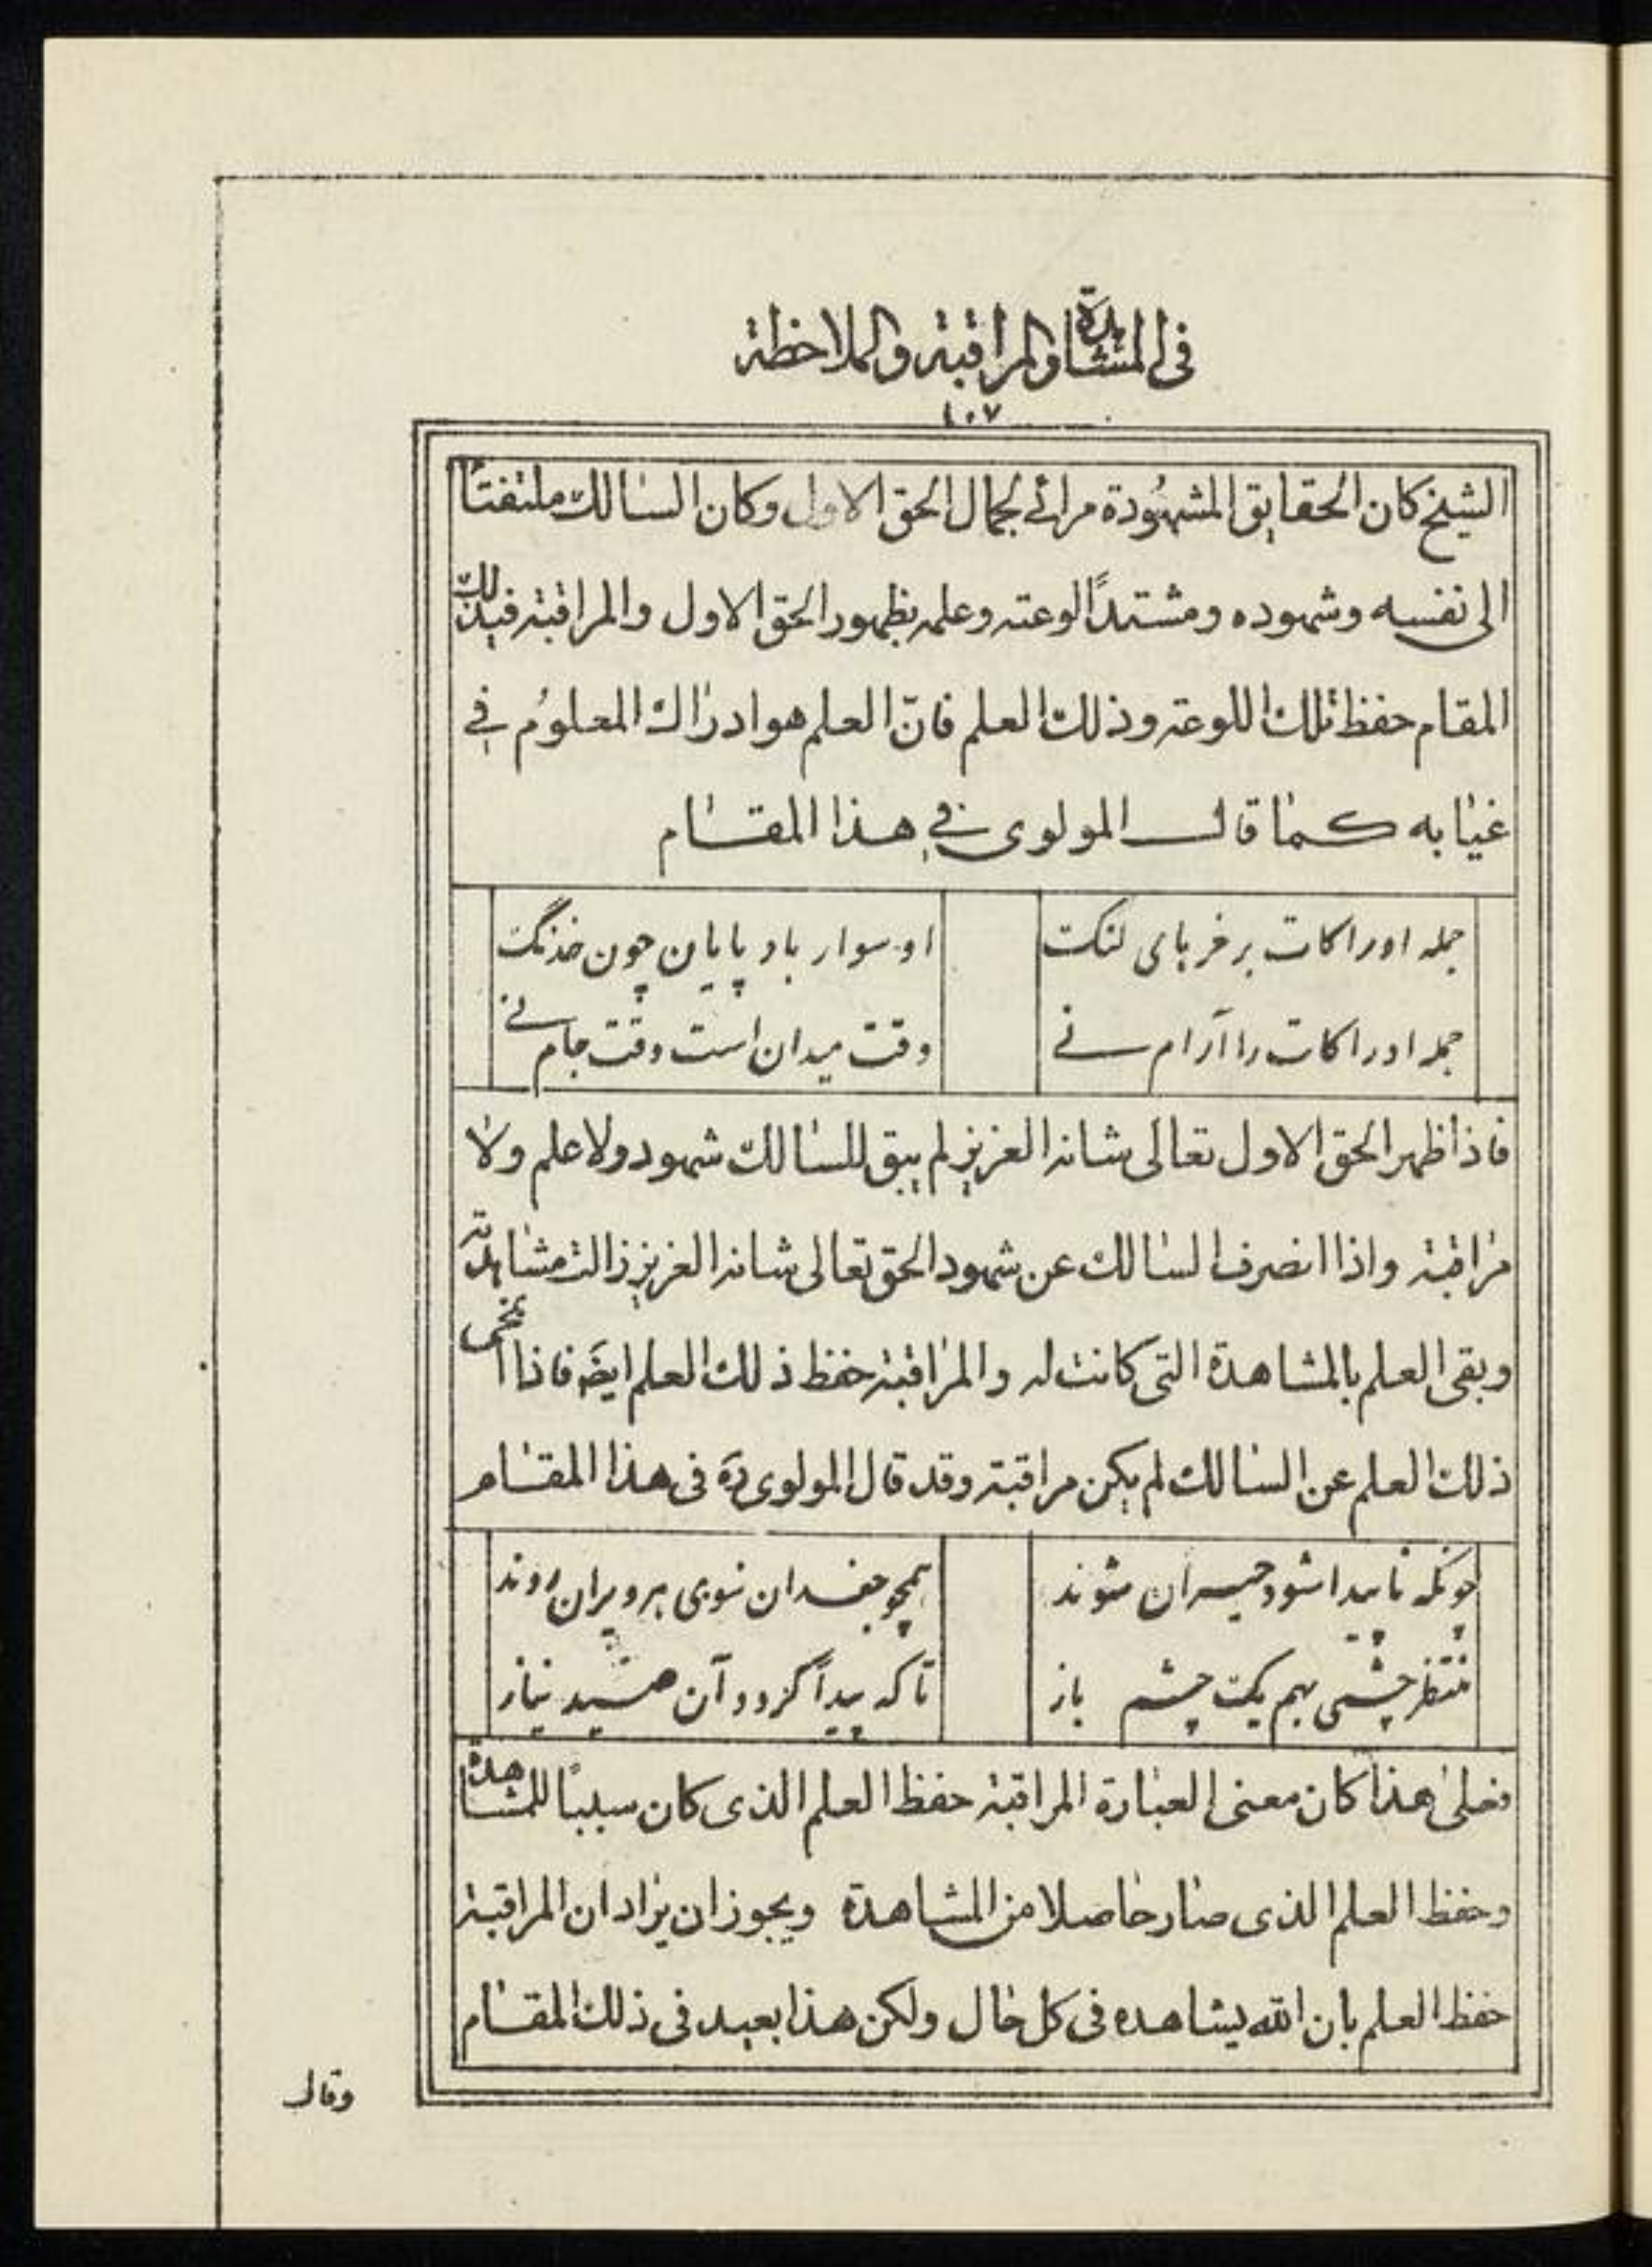 فى المشاهدة والمراقبة والملاحظة
١٠٧
الشيخ كان الحقايق المشهُودة مرائے لجمال الحق الاول وكان السالك ملتفتا
الى نفسه وشهوده ومشتدًا لوعته وعلمه بظهور الحق الاول والمراقبة فى ذلك
المقام حفظ تلك اللوعة وذلك العلم فانّ العلم هو ادراك المعلوُم فے
غيابه كما قال المولوى فے هذا المقام
جمله ادراكات بر خرهاى لنك او سوار باد پايان چون خدنگ
جمله ادراكات را آرام نے وقت ميدان است وقت جام نے
فاذا ظهر الحق الاول تعالى شانه العزيز لم يبق للسالك شهود ولا علم ولا
مراقبة واذا انصرف السالك عن شهود الحق تعالى شانه العزيز زالت مشاهدته
وبقى العلم بالمشاهدة التى كانت له والمراقبة حفظ ذلك العلم ايضَه فاذا انمحى
ذلك العلم عن السالك لم يكن مراقبة وقد قال المولوى ره فى هذا المقام
چونكه ناپيدا شود حيران شوند همچو جغدان سوى هر ويران روند
منتظر چشمى بهم يك چشم باز تا كه پيدا گردد آن صيد بناز
فعلى هذا كان معنى العبارة المراقبة حفظ العلم الذى كان سببًا للمشاهدة
وحفظ العلم الذى صار حاصلا من المشاهدة ويجوز ان يراد ان المراقبة
حفظ العلم بان الله يشاهده فى كل حال ولكن هذا بعيد فى ذلك المقام
وقال